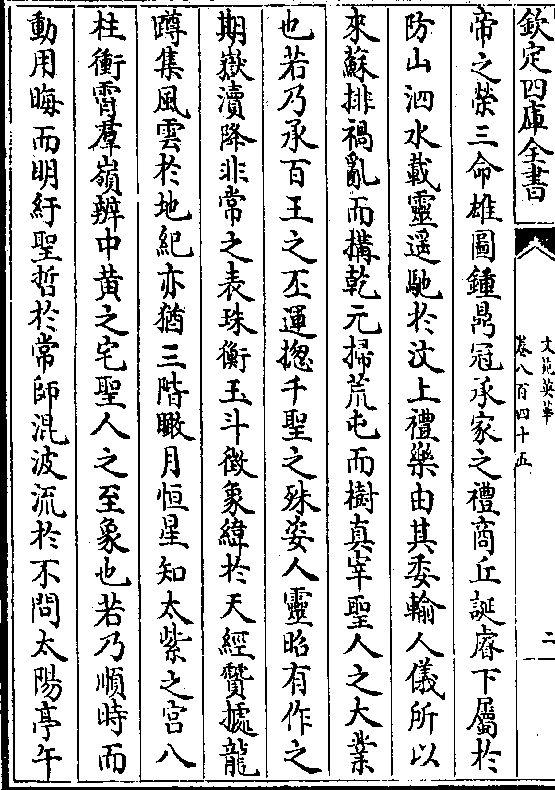 欽定四庫全書
文苑英華
卷八百四十五
二
帝之榮三命雄圖鍾鼎冠承家之禮商丘誕睿下屬於
防山泗水載靈遥馳於汶上禮樂由其委輸人儀所以
來蘇排禍亂而搆乾元掃荒屯而樹真宰聖人之大業
也若乃承百王之丕運揔千聖之殊姿人靈昭有作之
期嶽瀆降非常之表珠衡玉斗徴象緯於天經贒據龍
蹲集風雲於地紀亦猶三階瞰月恒星知太紫之宫八
柱衝霄羣嶺辨中黄之宅聖人之至象也若乃順時而
動用晦而明紆聖哲於常師混波流於不問太陽亭午